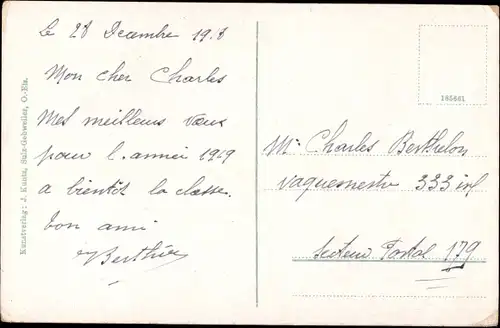 Le 28 Decembre 19.8
Mon cher Charles
Mes meilleurs vœux
pour l'année 1919
a bientôt la classe.
ton ami
Berthier
Mr Charles Berthelon
vaguemestre 333 inf
Secteur Postal 179
185661
Kunstverlag: J. Kuntz, Sulz-Gebweiler, O.-Els.